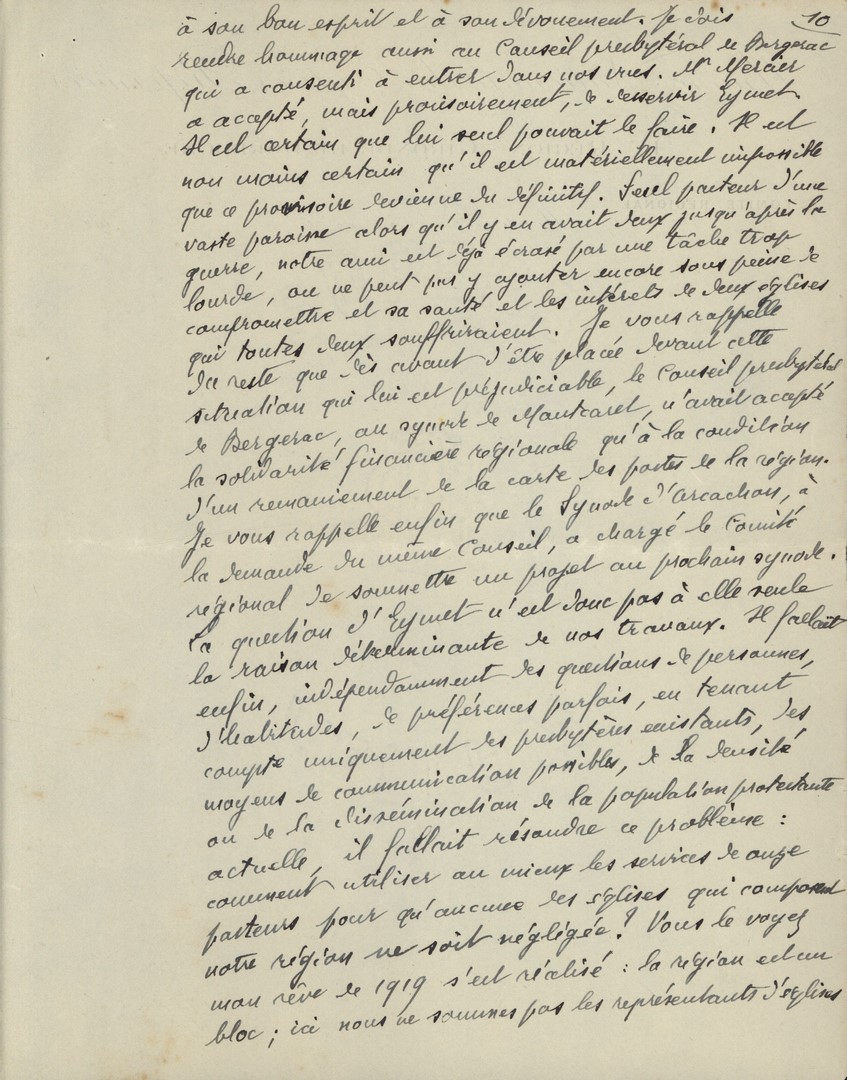 10
à son bon esprit et à son dévouement. Je dois
rendre hommage aussi au Conseil presbytéral de Bergerac
qui a consenti à entrer dans nos vues. Mr Mercier
a accepté, mais provisoirement, de desservir Eymet.
Il est certain que lui seul pouvait le faire. Il est
non moins certain qu'il est matériellement impossible
que ce provisoire devienne du définitif. Seul pasteur d'une
vaste paroisse alors qu'il y en avait deux jusqu'après la
guerre, notre ami est déjà écrasé par une tâche trop
lourde, on ne peut pas y ajouter encore sous peine de
compromettre et sa santé et les intérêts de deux églises
qui toutes deux souffriraient. Je vous rappelle
du reste que dès avant d'être placée devant cette
situation qui lui est préjudiciable, le Conseil presbytéral
de Bergerac, au synode de Montcaret, n'avait accepté
la solidarité financière régionale qu'à la condition
d'un remaniement de la carte des postes de la région.
Je vous rappelle enfin que le Synode d'Arcachon, à
la demande du même Conseil, a chargé le Comité
régional de soumettre un projet au prochain synode.
La question d'Eymet n'est donc pas à elle seule
la raison déterminante de nos travaux. Il fallait
enfin, indépendamment des questions de personnes,
d'habitudes, de préférences parfois, en tenant
compte uniquement des presbytères existants, des
moyens de communication possibles, de la densité
ou de la dissémination de la population protestante
actuelle, il fallait résoudre ce problème :
comment utiliser au mieux les services de onze
pasteurs pour qu'aucune des églises qui composent
notre région ne soit négligée ? Vous le voyez
mon rêve de 1919 s'est réalisé : la région est un
bloc ; ici nous ne sommes pas les représentants d'églises